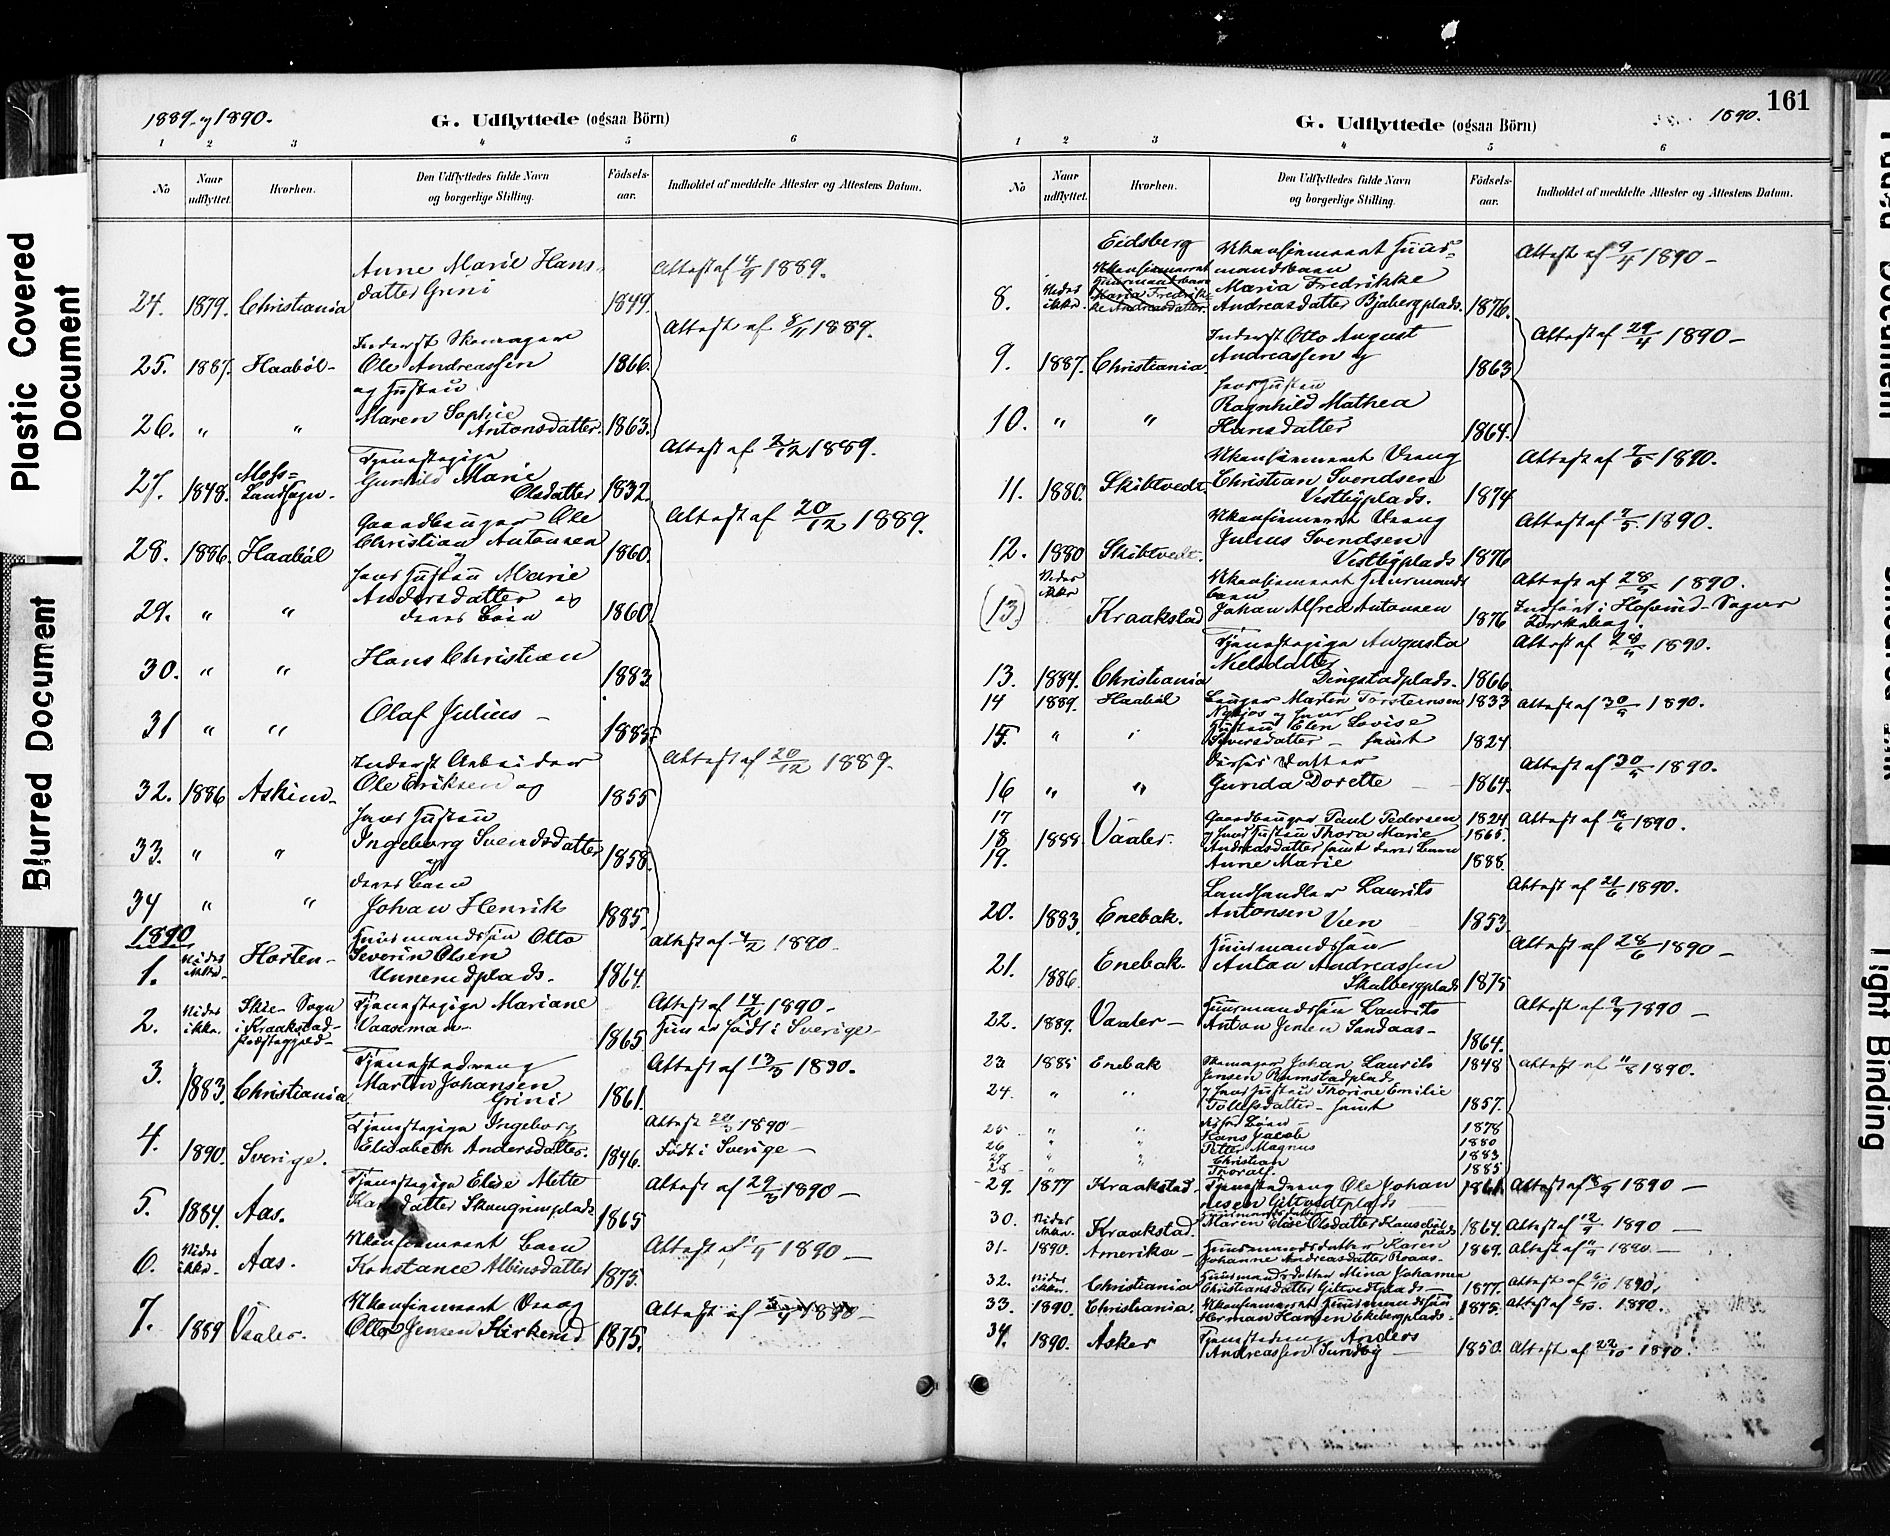 Plastic Covered
Document
Blurred Document
1889 og 1890.
G. Udflyttede (ogsaa Börn)
1 2 3 4 5 6
No
Naar udflyttet.
Hvorhen.
Den Udflyttedes fulde Navn
og borgerlige Stilling.
Födsels-
aar.
Indholdet af meddelte Attester og Attestens Datum.
24. 1879. Christiania
Anne Marie Hans-
datter Grini
1849.
Attest af 4/9 1889.
25. 1887. Haaböl-
Inderst
Ole Andreassen
1866.
Attest af 8/11 1889.
26. " "
og Hustru
Maren Sophie
Antonsdatter.
1863.
27. 1848. Moss=
Landsogn.
Tjenestepige
Gunhild Marie
Olsdatter
1832.
Attest af 2/12 1889.
28. 1886. Haaböl
Gaardbruger Ole
Christian Antonsen
og
1860.
Attest af 20/12 1889.
29. " "
hans Hustru Marie
Andersdatter og
deres Börn
1860.
30. " "
Hans Christian
1883
31 " "
Olaf Julius -
1885.
32. 1886 Askim-
Inderst Arbeider
Ole Eriksen og
1855
Attest af 20/12 1889.
33. " "
hans Hustru
Ingeborg Svendsdatter
og
1858.
34 " "
deres Barn
Johan Henrik
1885.
1890
1. Vides ikke. Horten-
Huusmandssön Otto
Severin Olsen
Unnemdplads.
1864.
Attest af 4/2 1890.
2. Vides ikke. Skie-Sogn
i Kraakstad-
Præstegjeld-
Tjenestepige Mariane
1865
Attest af 14/2 1890-
Hun er födt i Sverige-
3. 1883. Christiania
Tjenestedreng
Martin Johansen
Grini
1861.
Attest af 13/3 1890.
4. 1890. Sverige.
Tjenestepige Ingeborg
Elisabeth Andersdatter.
1846.
Attest 20/3 1890-
Födt i Sverige-
5. 1884. Aas.
Tjenestepige Elise Mette
Skaugrimplads
1865
Attest af 29/3 1890-
6. Vides ikke- Aas.
Ukonfirmeret Barn
Konstance Albinsdatter
1875.
Attest af 1/4 1890-
7. 1889 Vaaler.
Ukonfirmeret Dreng
Otto Jensen
1875.
Attest af 3/4 1890-
161
1890.
G. Udflyttede (ogsaa Börn)
1 2 3 4 5 6
No
Naar
udflyttet.
Hvorhen.
Den Udflyttedes fulde Navn
og borgerlige Stilling.
Födsels-
aar.
Indholdet af meddelte Attester og Attestens Datum.
8. Vides
ikke.
Eidsberg
Ukonfirmeret
Huusmandsbarn
Maria Fredrik-
ke Andreasdatter.
Ukonfirmeret Huus=
mandsbarn
Maria Fredrikke
Andreasdatter Bjabergplads.
1876.
Attest af 9/4 1890-
9. 1887. Christiania
Inderst Otto August
Andreassen og
1863
Attest af 29/4 1890-
10. " "
hans Hustru
Ragnhild Mathea
Hansdatter
1864.
11. 1880. Skibtvedt.
Ukonfirmeret Dreng
Christian Svendsen
Vestbyplads.
1874
Attest af 7/5 1890.
12. 1880 Skibtvedt.
Ukonfirmeret Dreng
Julius Svendsen
Vestbyplads
1876
Attest af 7/5 1890.
(13) Vides
ikke Kraakstad
Ukonfirmeret Huusmands
barn
Johan Alfred Antonsen
1876
Attest af 28/5 1890.
Indfört i Hobøl-Sogns
Kirkebog.
13. 1884. Christiania
Tjenestepige Augusta
Nielsdatter
Dingstadplads.
1866
Attest af 28/4 1890.
14 1889. Haaböl
Bruger Martin Torstensen
1833
Attest af 30/5 1890.
15. "
og hans
Hustru Elen Lovise
Siversdatter - samt
1824
16 " "
disses Datter
Gunda Dorette
1864.
Attest af 30/5 1890.
17
18 1888. Vaaler.
19.
Gaardbruger Paul Pedersen
og hans Hustru Thora Marie
Andreasdatter samt deres Barn
Anne Marie
1824
1865.
1888.
Attest af 10/6 1890.
20. 1883. Enebak.
Landhandler Laurits
Antonsen
1853
Attest af 21/6 1890.
21. 1886. Enebak.
Huusmandssön
Anton Andreassen
Skulbergplads
1875
Attest af 28/6 1890-
22. 1889. Vaaler-
Huusmandssön Laurits
Anton Jensen Sandaas-
1864.
Attest af 9/7 1890-
23 1885 Enebak
Skomager Johan Laurits
Jensen Rumstadplads
1848
Attest af 11/8 1890.
24. " "
og hans Hustru Thorine Emilie
Tollefsdatter- samt
1857.
disses Börn-
25 " " Hans Jacob 1878
26 " " Petter Magnus 1880
27 " " Christian 1883
28 " Thoralf. 1885
29. 1877 Kraakstad.
Tjenestedreng Ole Johan
nesen Gitvedtplads
1861.
Attest af 8/9 1890-
30. Vides
ikke. Kraakstad.
Huusmandsdatter
Maren Elise Olsdatter
1864.
Attest af 12/9 1890-
31. 1890. Amerika-
Huusmandsdatter Karen
Johanne Andreasdatter Roaas-
1869.
Attest af 1890-
32. Vides
ikke. Christiania
Huusmandsdatter Mina Johanna
Christiansdatter Gitvedtplads-
1877.
Attest af 6/10 1890.
33. 1890. Christiania.
Ukonfirmeret Huusmandssön
Herman Hansen Ekebergplads.
1875.
Attest af 6/10. 1890.
34. 1890. Asker
Tjenestedreng Anders
Andreassen Sundby-
1850.
Attest af 22/10 1890.
Document
Tight Binding